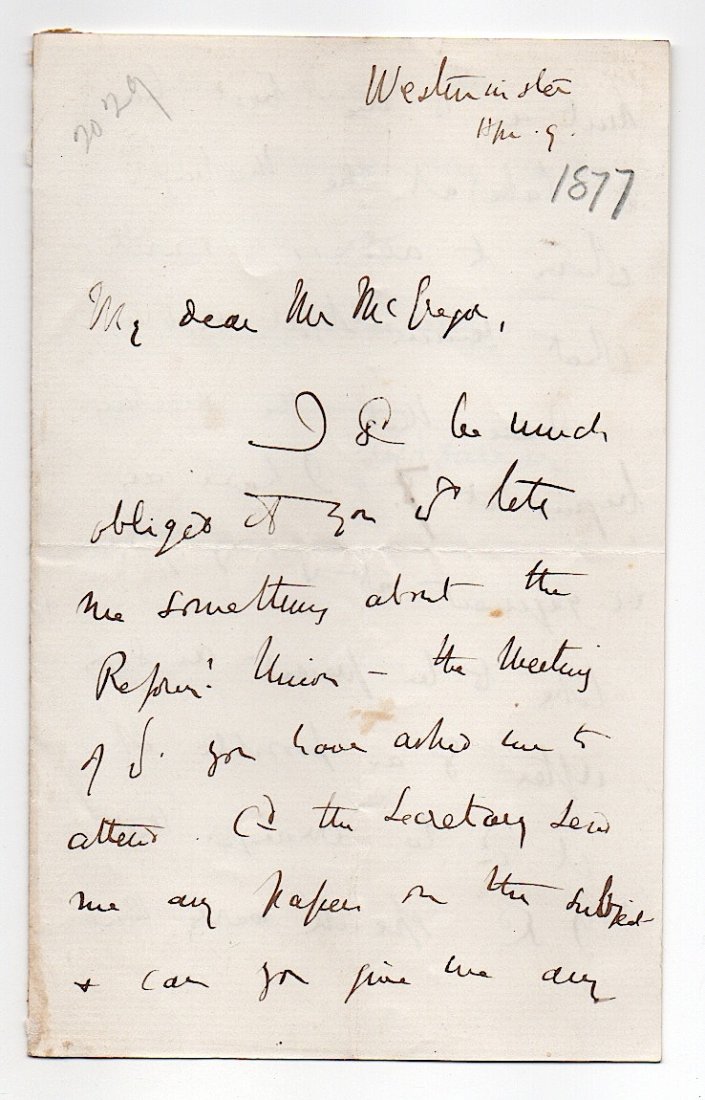 20 29
Westminster
Apr. 9.
1877
My dear Mr McGregor,
I shd be much
obliged if you wd let
me something about the
Reform! Union – the Meeting
of wh. you have asked me to
attend. Cd the Secretary send
me any papers on the subject
& can you give me any